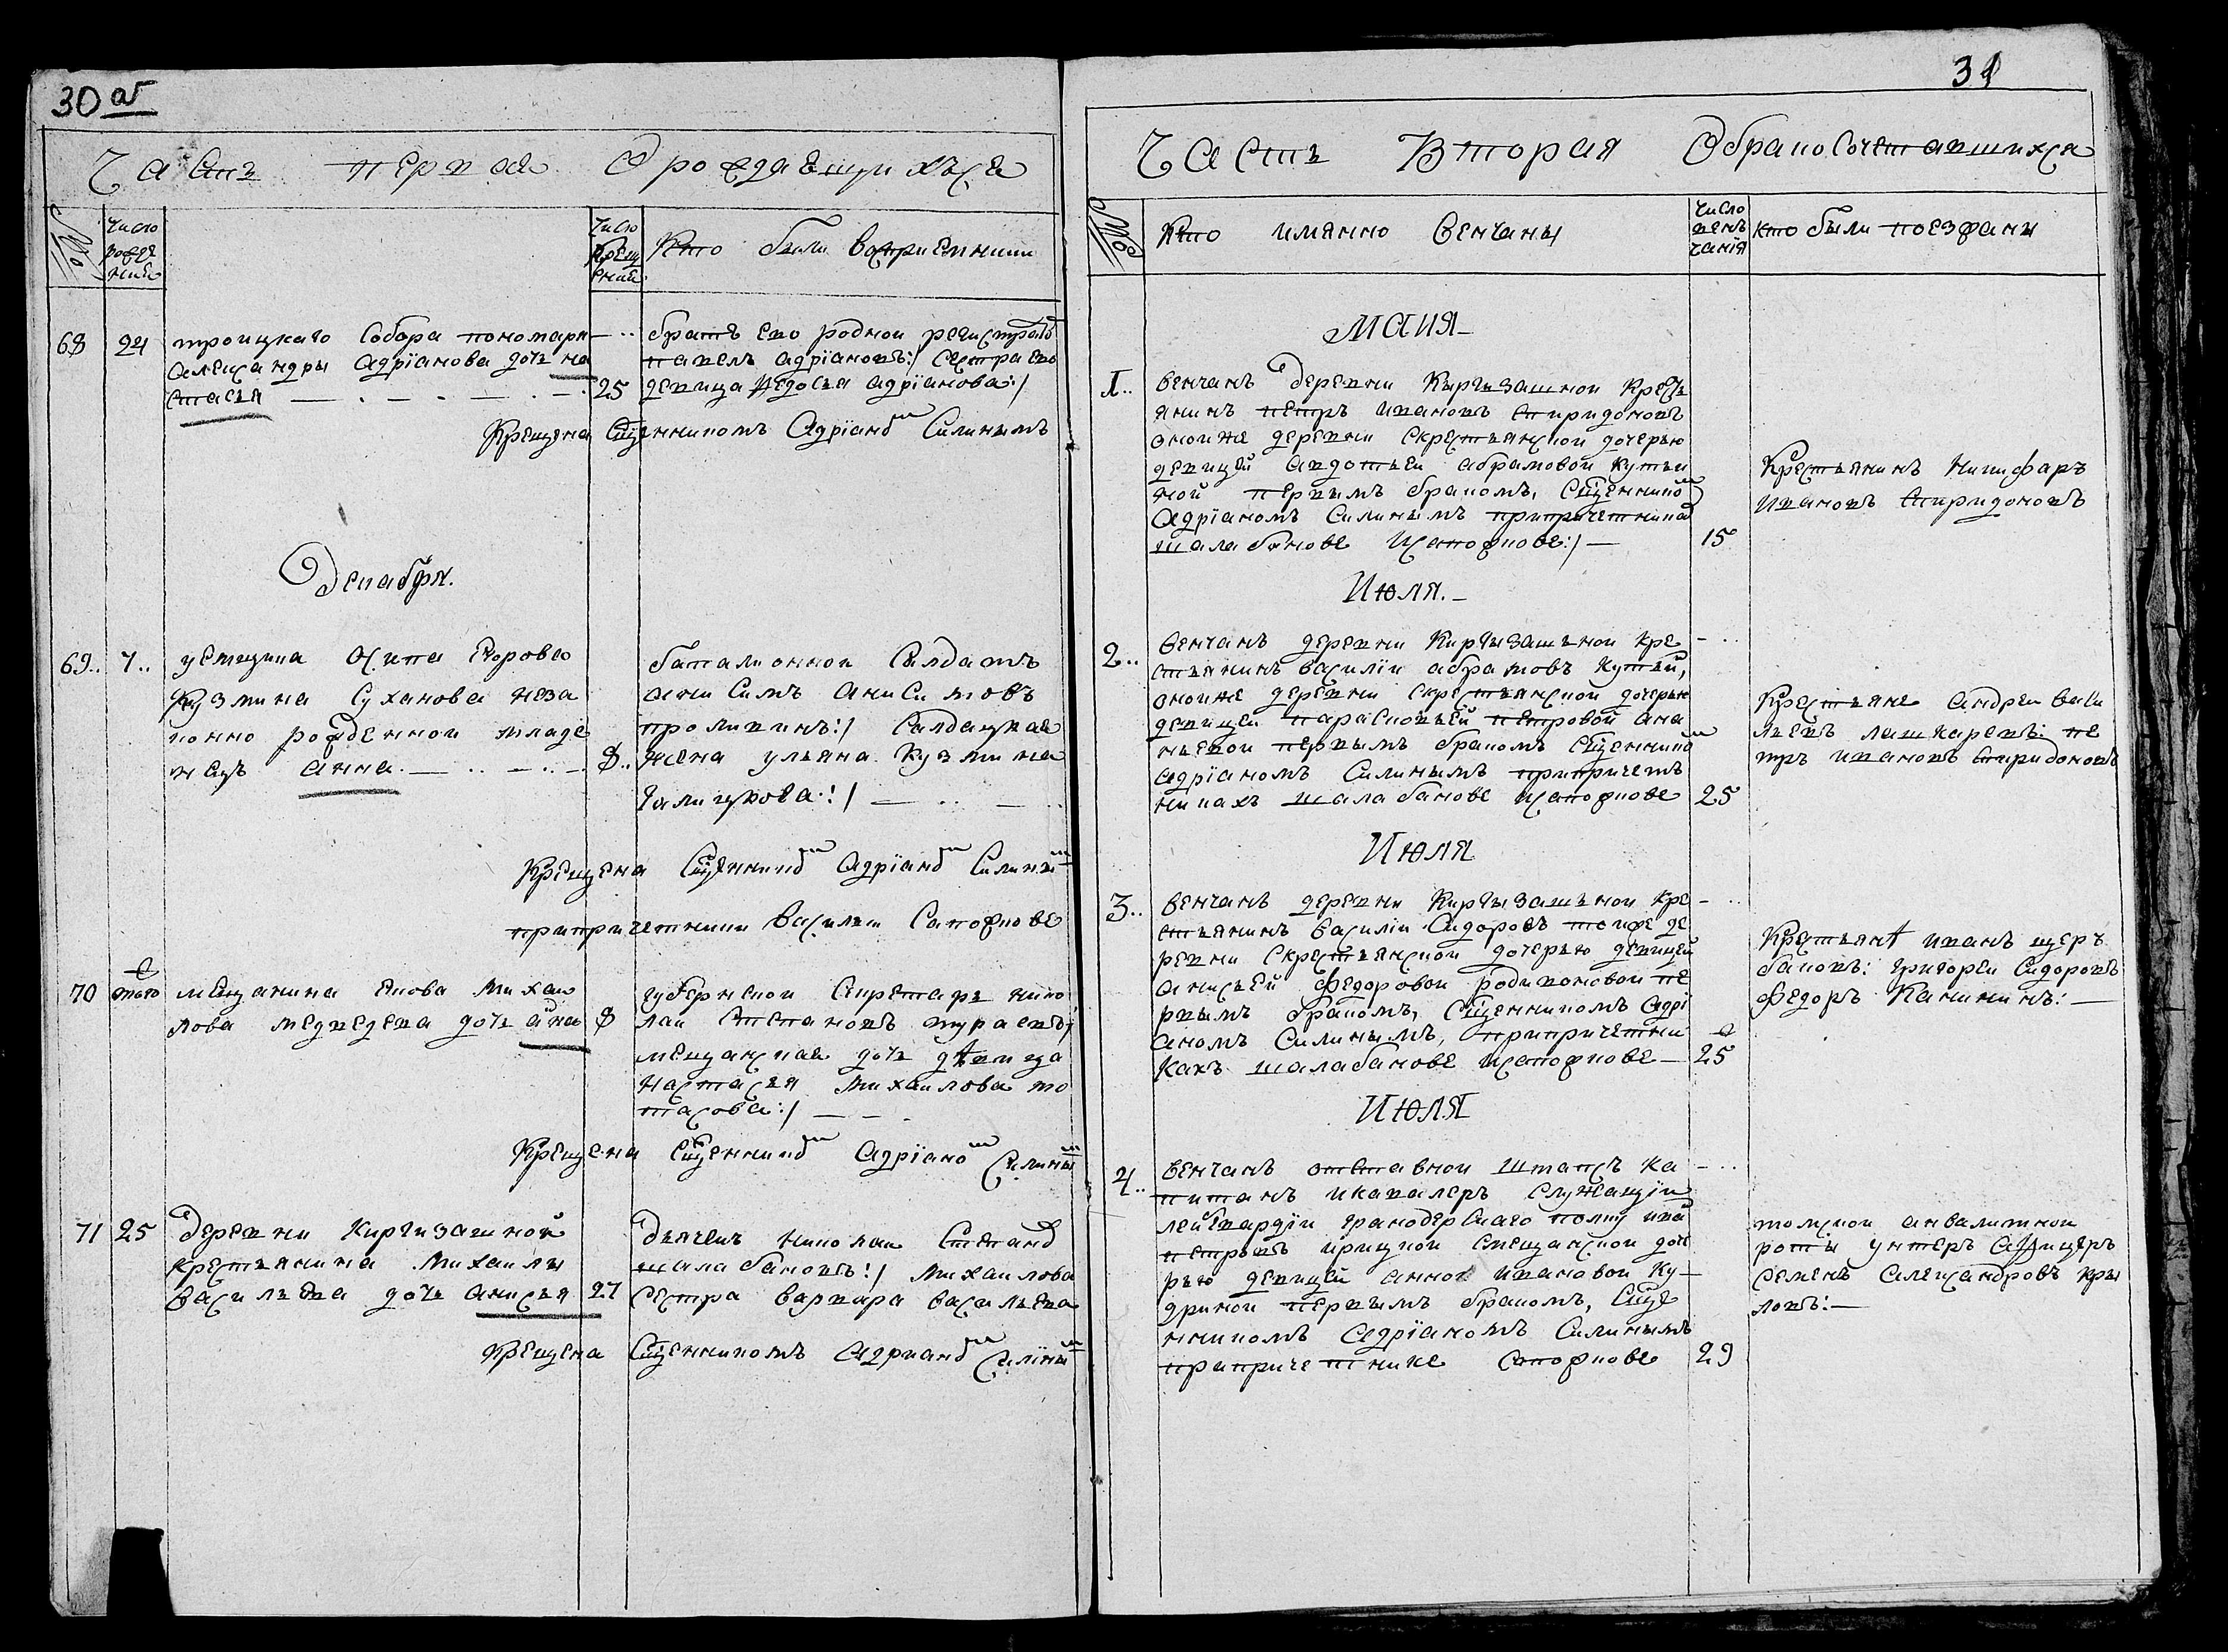 30 об
Часть первая О рождающихся
№
Число рождения
Число крещения
Кто были восприемники
68 24 троицкаго Собора пономаря
Александры Адрїанова дочь на
стасья
25
братъ ево родной регистраторъ
павелъ адрїановъ:/ сестра ево
девица Федосья адрїанова:/
Крещена Сщенникомъ Адрїаномъ Силинымъ
Декабря.
69.. 7.. у Мещанина Осипа Егорова
Кузмина Суханова неза
конно рожденной младе
нецъ анна.
8..
баталионной Салдатъ
аниСимъ аниСимовъ
проликинъ:/ Салдацкая
жена ульяна Кузмина
Галицкова:/
Крещена Сщенникомъ Адрїаномъ Силинымъ
при причетники Василье Сапожкове
70 того мещанина Якова Михаи
лова медведева дочь анна 8
губернской Секретарь нико
лай Степановъ тураевъ/
мещанская дочь девица
Настасья Михаилова по
тасова:/
Крещена Сщенникомъ Адрїаномъ Силинымъ
71 25 Деревни Киргизашной
крестьянина Михаилы
василѣева дочь Анисья 27
Дьячекъ николай Степановъ
шалабановъ:/ Михаилова
Сестра варвара васильева
Крещена Сщенникомъ Адрианомъ Силинымъ
31
Часть Вторая О бракоСочетавшихся
№
Кто имянно венчаны
Число венчанїя
кто были поезжаны
МАИЯ
1.. венчанъ Деревни Киргизашной Кресть
янинъ петръ ивановъ Спиридоновъ
оной же деревни Скрестьянской дочерью
девицей авдотьей абрамовой Кутьи
ной первымъ бракомъ, Сщенникомъ
Адрїаномъ Силинымъ припричетникахъ
шалабанове иСапожкове:/ 15
Крестьянинъ Никифаръ
ивановъ Спиридоновъ
Июля.
2.. венчанъ деревни Киргызашъной кре
стьянинъ василїи абрамовъ Кутьи,
оной же деревни Скрестьянской дочерью
девицей парасковьей петровой ана
ньевой первымъ бракомъ Сщенникомъ
адрїаномъ Силинымъ припричеть
никахъ шалабанове иСапожкове 25
Крестьяне андреи васи
льевъ лашкаревъ: пе
тръ ивановъ Спиридоновъ
Июля
3.. венчанъ деревни Киргызашъной кре
стьянинъ василїи Сидоровъ тойже де
ревни Скрестьянской дочерью девицей
анисьей федоровой родивоновой пе
рвымъ бракомъ, Сщенникомъ адрї
аномъ Силинымъ, припричетни
кахъ шалабанове иСапожкове 25
Крестьянѣ иванъ щер
баковъ: григореи Сидоровъ
федоръ Канининъ:
Июля
4.. венчанъ отставной штапсъ ка
питанъ икавалеръ Служащїи
лейбгвардїи гранодерскаго полку ива
петровъ
Смещанской доче
рью девицей анной ивановой Ку
дриной первымъ бракомъ, Сще
нникомъ адрїаномъ Силинымъ
припричетнике Сапожкове 29
томской анвалитной
роты унтеръ афицеръ
Семенъ Александровъ кры
ловъ: